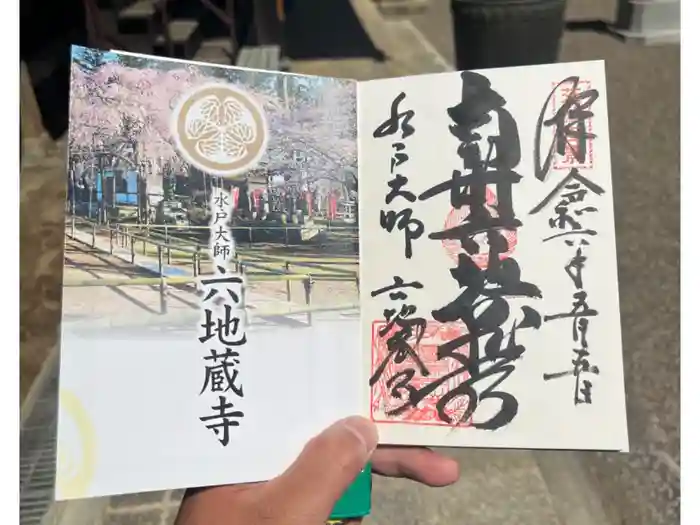 水戸大師
六地蔵寺
拝
令和六年五月五日
南無六地蔵尊
水戸大師
六地蔵寺